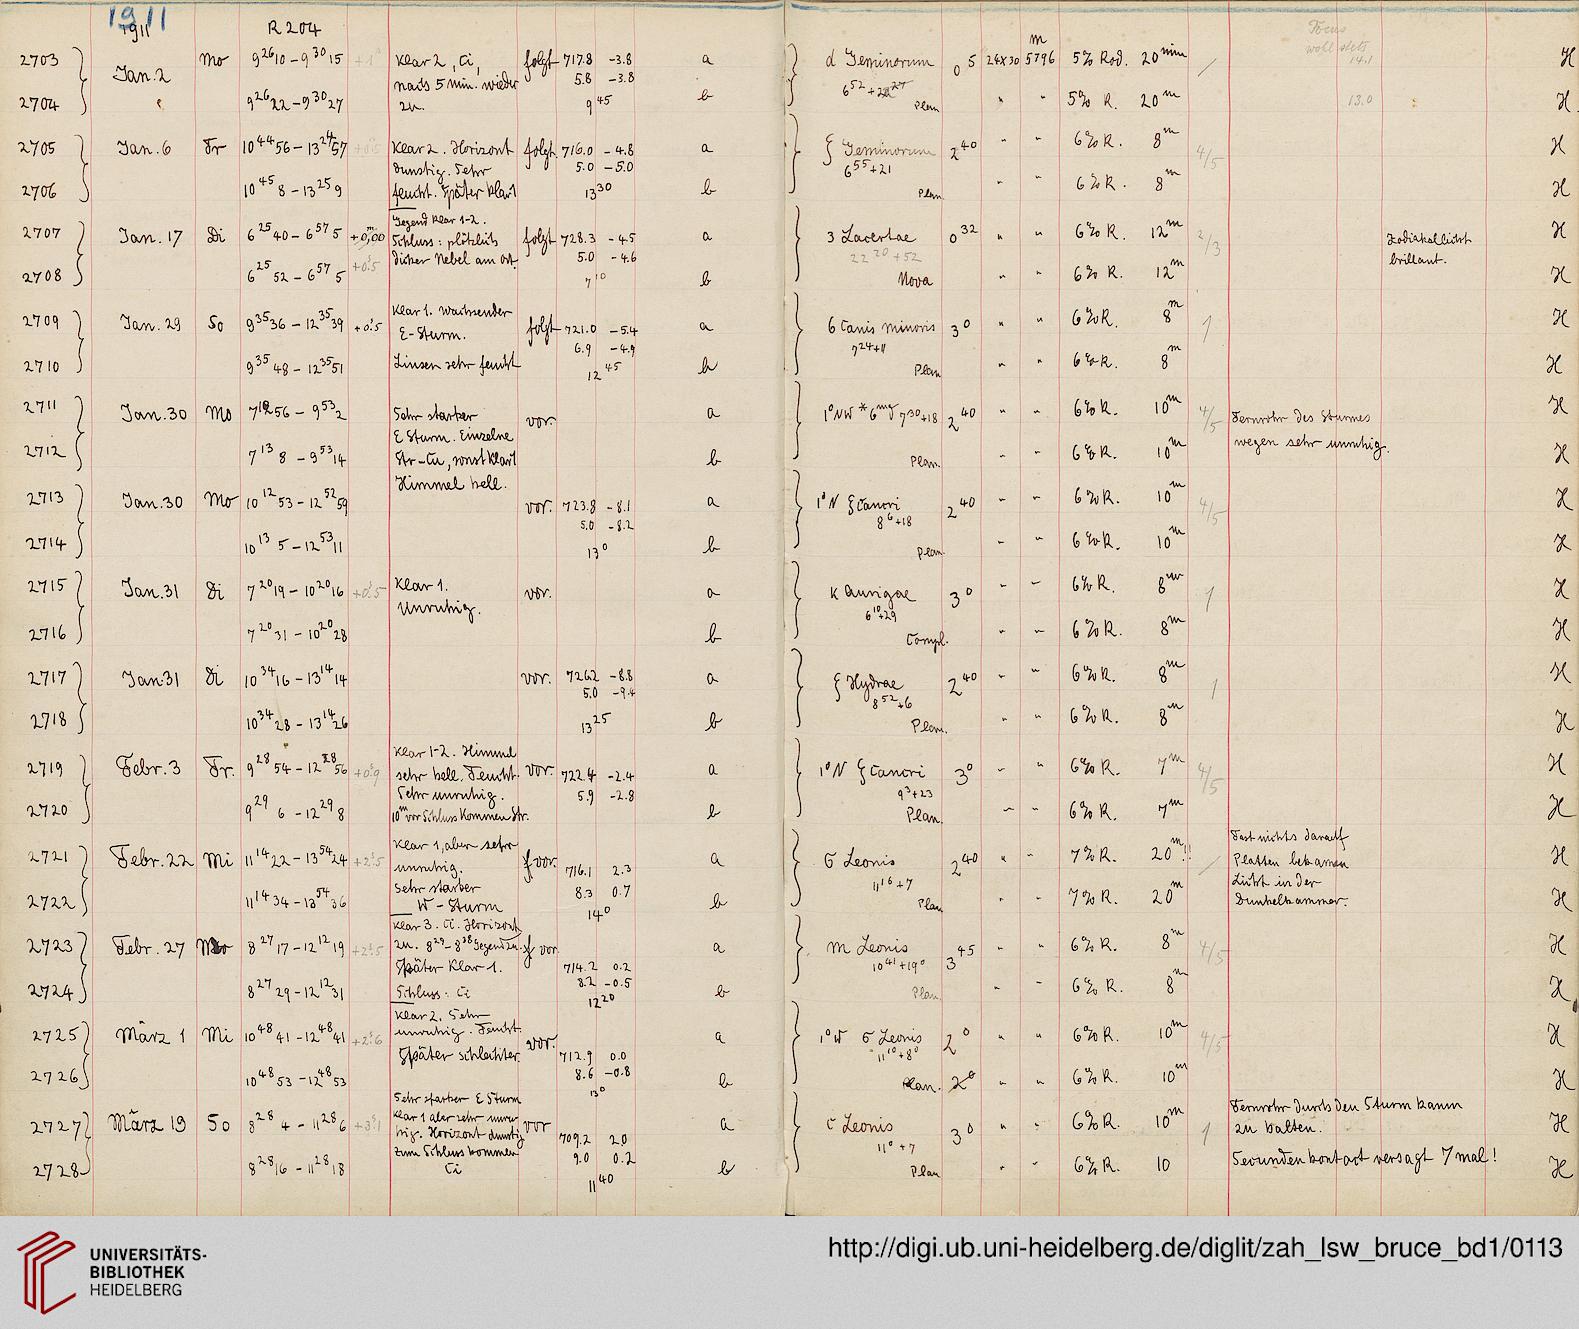 1911
1911 R 204 Focus
wohl stets
2703 Jan. 2 Mo 9 26 10 – 9 30 15 klar 2, Ci, folgt 717.8 -3.8 a d Geminorum 0 5 24x30 m 5796 5% Rod. 20 min 14.1 H
nach 5 min. wieder 5.8 -3.8 6 52 +22
2704 9 26 22 – 9 30 27 zu. 9 45 b Plan " " 5% R. 20 m 13.0 H
2705 Jan. 6 Fr 10 44 56 – 13 24 57 Klar 2. Horizont folgt. 716.0 -4.8 a ζ Geminorum 2 40 " " 6% R. 8 m 4/5 H
dunstig. Sehr 5.0 -5.0 6 55 +21
2706 10 45 8 – 13 25 9 feucht. Später klar 1 13 30 b Plan " " 6% R. 8 m H
Gegend klar 1-2.
2707 Jan. 17 Di 6 25 40 – 6 57 5 +0,00 Schluss: plötzlich folgt 728.3 -4.5 a 3 Lacertae 0 32 " " 6% R. 12 m 2/3 Zodiakallicht H
+0.5 dicker Nebel am Ort. 5.0 -4.6 22 20 +52 brillant.
2708 6 25 52 – 6 57 5 7 10 b Nova " " 6% R. 12 m H
klar 1. Wachsender
2709 Jan. 29 So 9 35 36 – 12 35 39 +0.5 E-Sturm. folgt 721.0 -5.4 a 6 Canis minoris 3 0 " " 6% R. 8 m 1 H
6.9 -4.9 7 24 +11
2710 9 35 48 – 12 35 51 Linsen sehr feucht 12 45 b Plan " " 6% R. 8 m H
2711 Jan. 30 Mo 7 12 56 – 9 53 2 Sehr starker vor. a 1° NW * 6 mg 7 30 +18 2 40 " " 6% R. 10 m 4/5 Fernrohr des Sturmes H
E Sturm. Einzelne wegen sehr unruhig.
2712 7 13 8 – 9 53 14 Str-Cu, sonst klar 1 b Plan. " " 6% R. 10 m H
Himmel hell.
2713 Jan. 30 Mo 10 12 53 – 12 52 59 vor. 723.8 -8.1 a 1° N ζ Cancri 2 40 " " 6% R. 10 m 4/5 H
5.0 -8.2 8 6 +18
2714 10 13 5 – 12 53 11 13 0 b Plan " " 6% R. 10 m H
2715 Jan. 31 Di 7 20 19 – 10 20 16 +0.5 Klar 1. vor. a κ Aurigae 3 0 " " 6% R. 8 m 1 H
Unruhig. 6 10 +29
2716 7 20 31 – 10 20 28 b Compl. " " 6% R. 8 m H
2717 Jan. 31 Di 10 34 16 – 13 14 14 vor. 726.2 -8.8 a ζ Hydrae 2 40 " " 6% R. 8 m 1 H
5.0 -9.4 8 52 +6
2718 10 34 28 – 13 14 26 13 25 b Plan. " " 6% R. 8 m H
Klar 1-2. Himmel
2719 Febr. 3 Fr. 9 28 54 – 12 28 56 +0.9 sehr hell. Feucht. vor. 722.4 -2.4 a 1° N ζ Cancri 3 0 " " 6% R. 7 m 4/5 H
Sehr unruhig. 5.9 -2.8 9 3 +23
2720 9 29 6 – 12 29 8 10 m vor Schluss kommen Str. b Plan. " " 6% R. 7 m H
Klar 1, aber sehr Fast nichts darauf
2721 Febr. 22 Mi 11 14 22 – 13 54 24 +2.5 unruhig. vor. 716.1 2.3 a σ Leonis 2 40 " " 7% R. 20 m!! Platten bekamen H
Sehr starker 8.3 0.7 11 16 +7 Licht in der
2722 11 14 34 – 13 54 36 W-Sturm 14 0 b Plan " " 7% R. 20 m Dunkelkammer. H
Klar 3. Ci. Horizont
2723 Febr. 27 Mo 8 27 17 – 12 12 19 +2.5 zu. 8 29 – 8 38 Gegend zu. vor. a m Leonis 3 45 " " 6% R. 8 m 4/5 H
Später klar 1. 714.2 0.2 10 41 +19°
2724 8 27 29 – 12 12 31 Schluss: Ci 8.2 -0.5 b Plan. " " 6% R. 8 m H
12 20
Klar 2. Sehr
2725 März 1 Mi 10 48 41 – 12 48 41 +2.6 unruhig. Feucht. vor. a 1° W σ Leonis 2 0 " " 6% R. 10 m 4/5 H
Später schlechter. 712.9 0.0 11 10 +8°
2726 10 48 53 – 12 48 53 8.6 -0.8 b Plan. 2 0 " " 6% R. 10 m H
13 0
Sehr starker E Sturm Fernrohr durch den Sturm kaum
2727 März 19 So 8 28 4 – 11 28 6 +3.1 klar 1 aber sehr unru- vor a c Leonis 3 0 " " 6% R. 10 m 1 zu halten. H
hig. Horizont dunstig 709.2 2.0 11 0 +7
2728 8 28 16 – 11 28 18 zum Schluss kommen 9.0 0.2 b Plan " " 6% R. 10 Secundenkontact versagt 7 mal! H
Ci 11 40
UNIVERSITÄTS-
BIBLIOTHEK
HEIDELBERG
http://digi.ub.uni-heidelberg.de/diglit/zah_lsw_bruce_bd1/0113